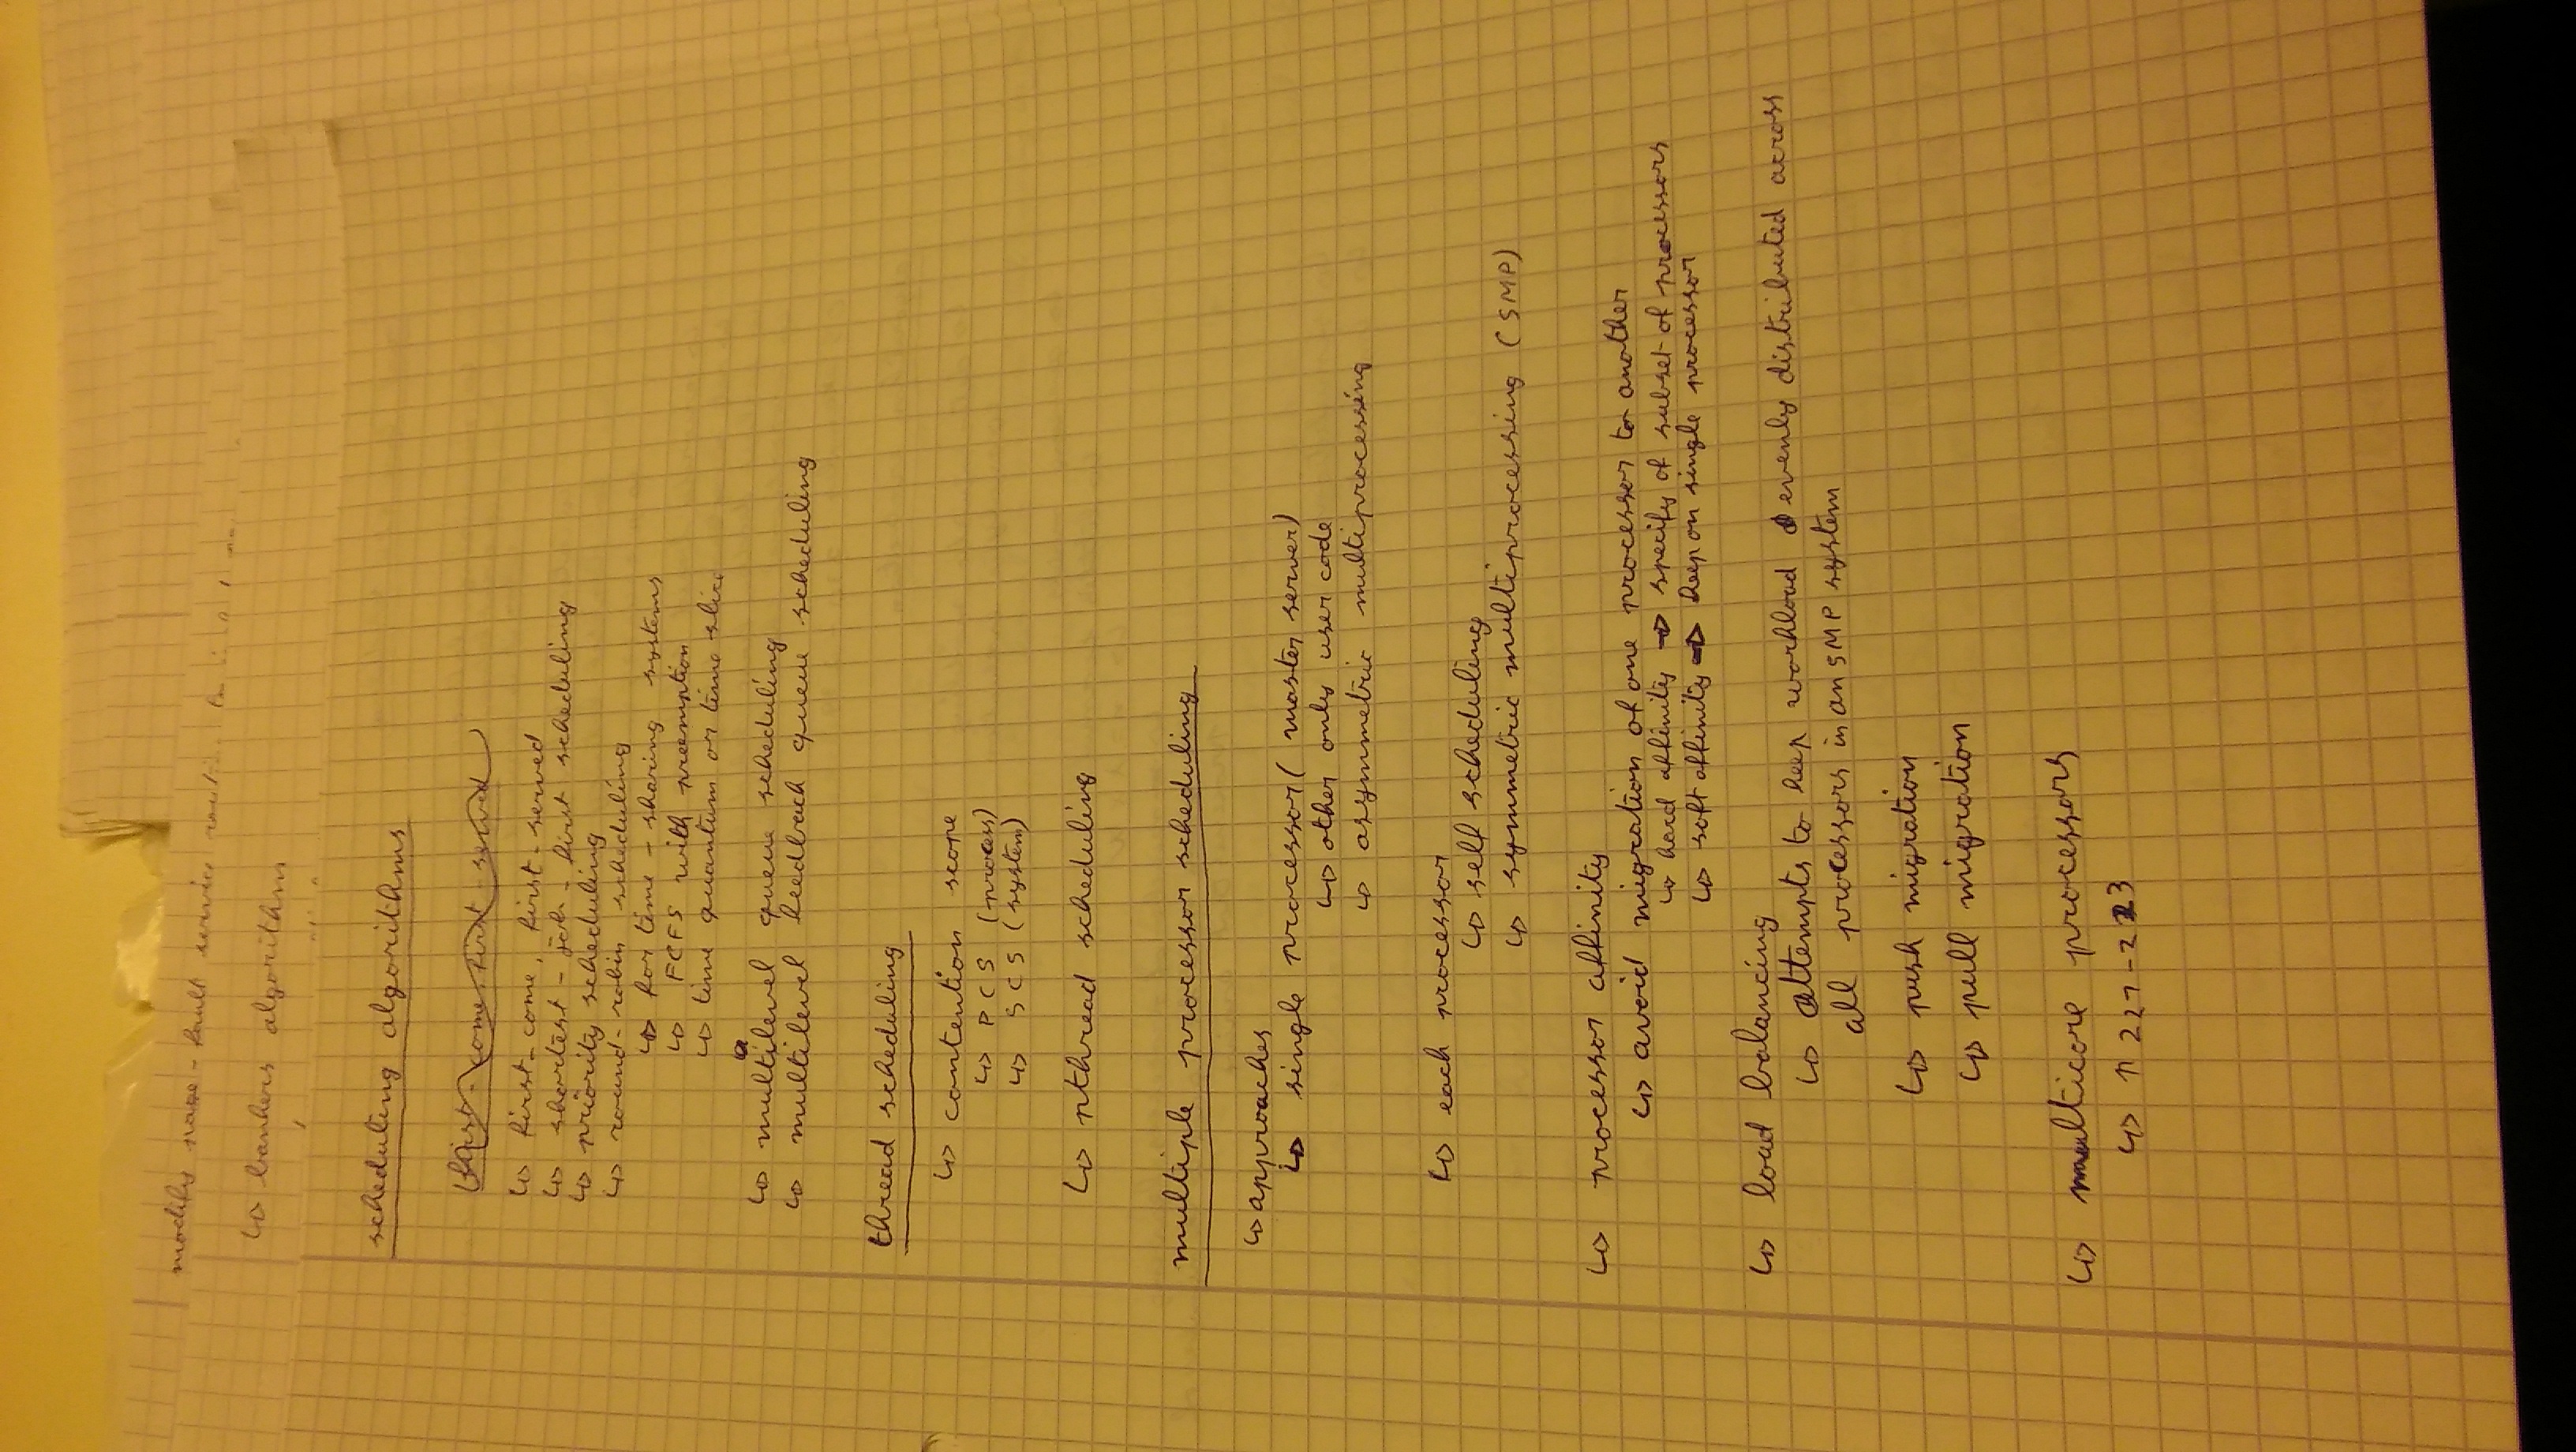 modify page-fault service
↳ bankers algorithm
scheduling algorithms
first-come, first-served
↳ first-come, first-served
↳ shortest-job-first scheduling
↳ priority scheduling
↳ round-robin scheduling
↳ for time-sharing systems
↳ FCFS with preemption
↳ time quantum or time slice
↳ multilevel queue scheduling
↳ multilevel feedback queue scheduling
thread scheduling
↳ contention scope
↳ PCS (process)
↳ SCS (system)
↳ pthread scheduling
multiple processor scheduling
↳ approaches
↳ single processor (master server)
↳ other only user code
↳ asymmetric multiprocessing
↳ each processor
↳ self scheduling
↳ symmetric multiprocessing (SMP)
↳ processor affinity
↳ avoid migration of one processor to another
↳ hard affinity → specify of subset of processors
↳ soft affinity → keep on single processor
↳ load balancing
↳ attempts to keep workload evenly distributed across
all processors in an SMP system
↳ push migration
↳ pull migration
↳ multicore processors
↳ p 221-223